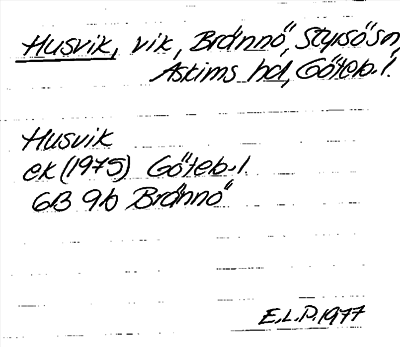 Husvik, vik, Brännö, Styrsö sn,
Askims hd, Göteb.l.
Husvik
ek (1975) Göteb.l.
6B 9b Brännö
E.L.P. 1977